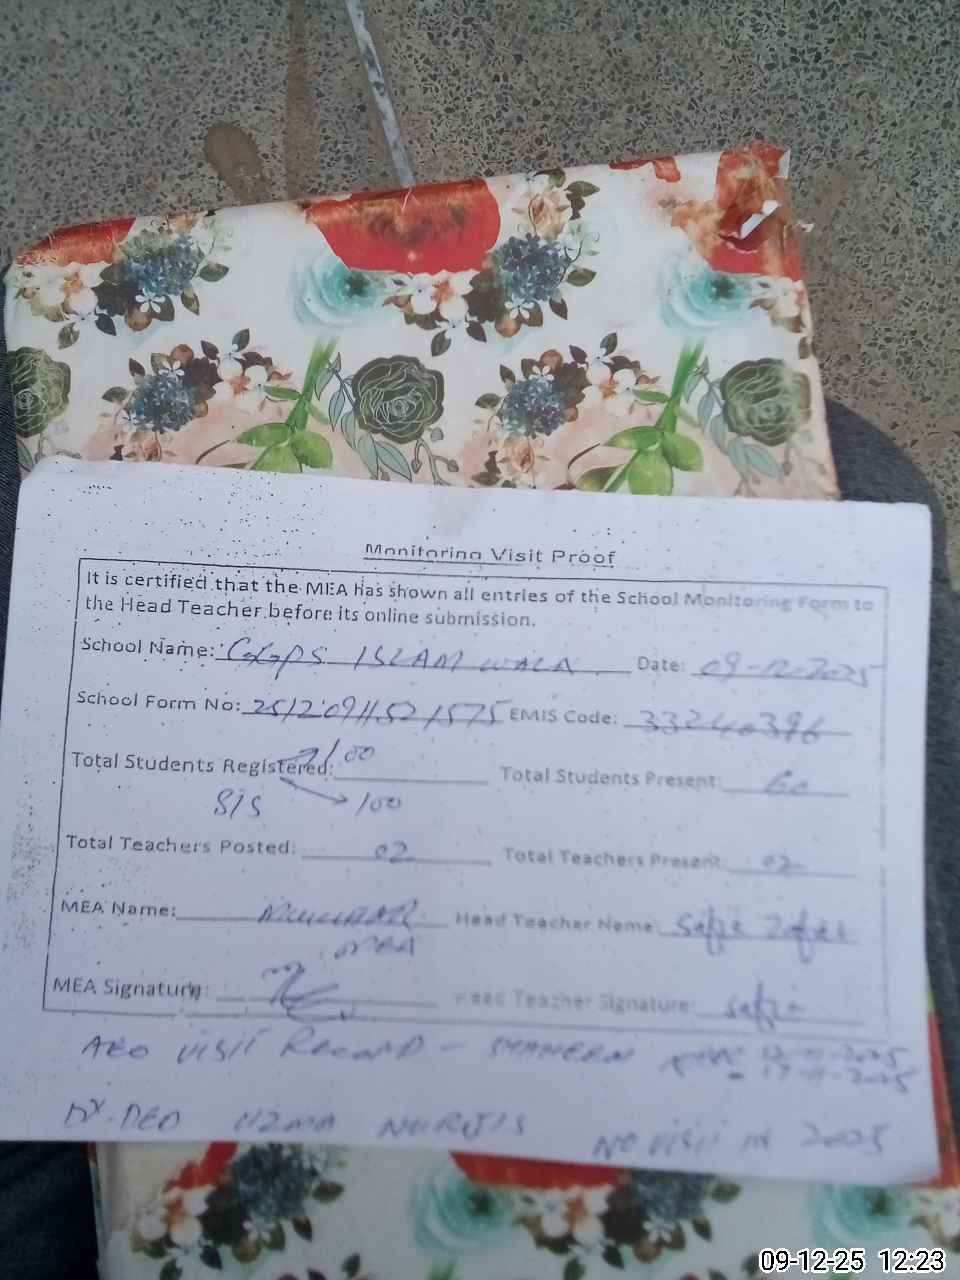 Monitoring Visit Proof
It is certified that the MEA has shown all entries of the School Monitoring Form to
the Head Teacher before its online submission.
School Name: GGPS ISLAM WALA Date: 09-12-2025
School Form No: 25120911521575 EMIS Code: 33240396
Total Students Registered: 100 Total Students Present: 60
SIS 100
Total Teachers Posted: 02 Total Teachers Present: 02
MEA Name: Head Teacher Name: Safia
MEA
MEA Signature: Head Teacher Signature: Safia
AEO VISIT RECORD - SHAHEEN 12-11-2025
= 17-11-2025
DY-DEO UZMA NURJIS NO VISIT IN 2025
09-12-25 12:23